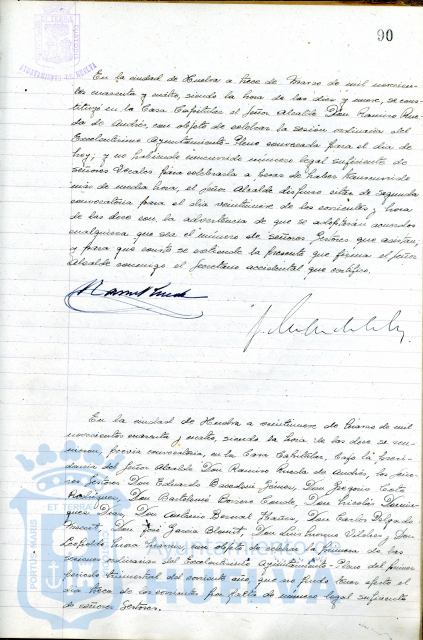 90
AYUNTAMIENTO DE HUELVA
En la ciudad de Huelva a trece de Marzo de mil novecien-
tos cuarenta y cuatro, siendo la hora de las diez y nueve, se cons-
tituyó en la Casa Capitular el Señor Alcalde Don Ramiro Rue-
da de Andrés, con objeto de celebrar la sesión ordinaria del
Excelentísimo Ayuntamiento Pleno convocada para el dia de
hoy; y no habiendo concurrido número legal suficiente de
señores Vocales para celebrarla a pesar de haber transcurrido
más de media hora, el señor Alcalde dispuso citar de segunda
convocatoria para el dia veintinueve de los corrientes y hora
de las doce con la advertencia de que se adoptarán acuerdos
cualquiera que sea el número de señores Gestores que asistan,
y para que conste se extiende la presente que firma el señor
Alcalde conmigo el Secretario accidental que certifico.
En la ciudad de Huelva a veintinueve de Marzo de mil
novecientos cuarenta y cuatro, siendo la hora de las doce se reu-
nieron, previa convocatoria, en la Casa Capitular, bajo la presi-
dencia del Señor Alcalde Don Ramiro Rueda de Andrés, los
Señores Don Eduardo Don Gregorio
Rodriguez, Don Bartolomé Borrero Conde, Don Nicolás Domin-
guez Diaz, Don Antonio Bernal Don Carlos Delgado
Don José Garcia Don Luis Don
Leopoldo con objeto de celebrar la primera de las
sesiones ordinarias del Excelentísimo Ayuntamiento Pleno del primer
periodo trimestral del corriente año, que no pudo tener efecto el
dia trece de los corrientes por falta de número legal suficiente
de señores Gestores.
PORTUS MARIS